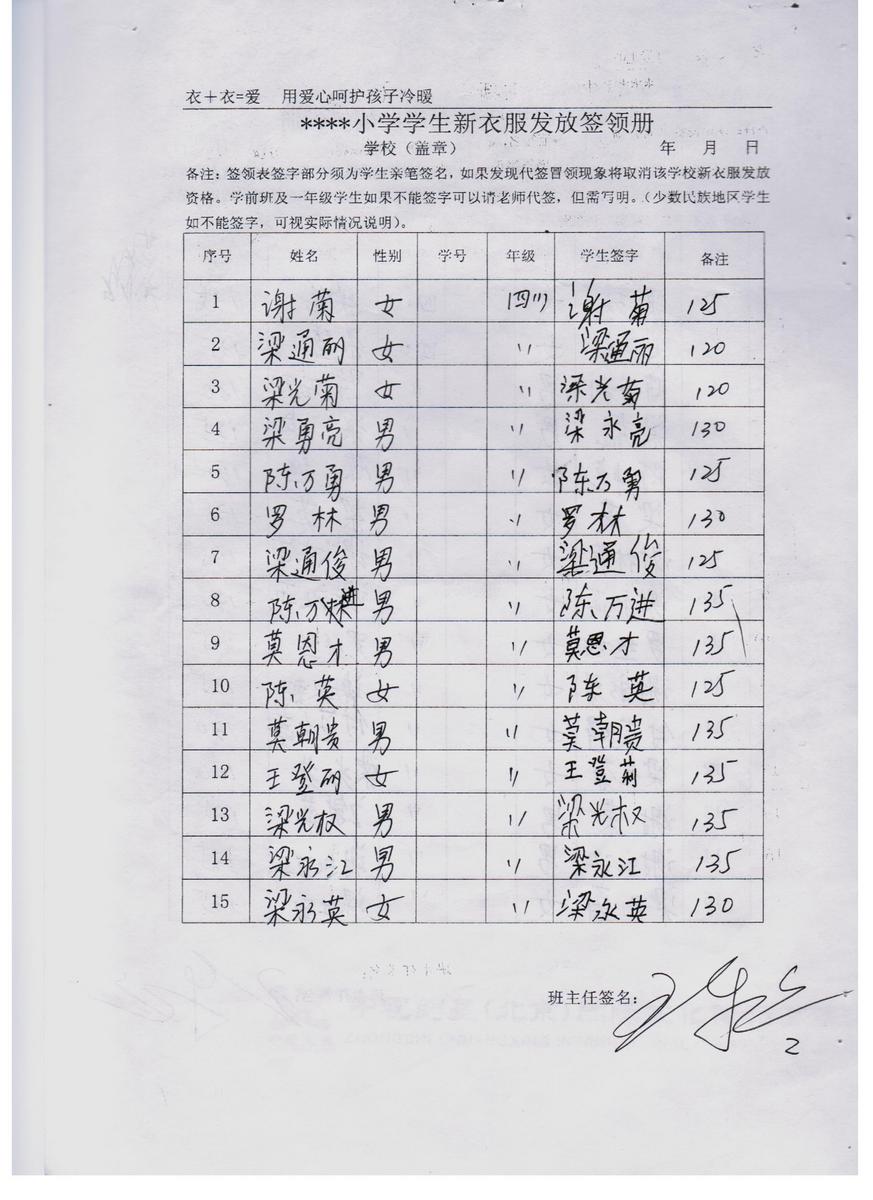 衣＋衣=爱 用爱心呵护孩子冷暖
****小学学生新衣服发放签领册
学校（盖章） 年 月 日
备注：签领表签字部分须为学生亲笔签名，如果发现代签冒领现象将取消该学校新衣服发放
资格。学前班及一年级学生如果不能签字可以请老师代签，但需写明。（少数民族地区学生
如不能签字，可视实际情况说明）。
序号 姓名 性别 学号 年级 学生签字 备注
1 谢菊 女 谢菊 125
2 梁通丽 女 〃 梁通丽 120
3 梁光菊 女 〃 梁光菊 120
4 梁勇亮 男 〃 梁永亮 130
5 陈万勇 男 〃 陈万勇 125
6 罗林 男 〃 罗林 130
7 梁通俊 男 〃 梁通俊 125
8 陈万进 男 〃 陈万进 135
9 莫恩才 男 〃 莫恩才 135
10 陈英 女 〃 陈英 125
11 莫朝贵 男 〃 莫朝贵 135
12 王登丽 女 〃 王登 135
13 梁光权 男 〃 梁光权 135
14 梁永江 男 〃 梁永江 135
15 梁永英 女 〃 梁永英 130
班主任签名：
2